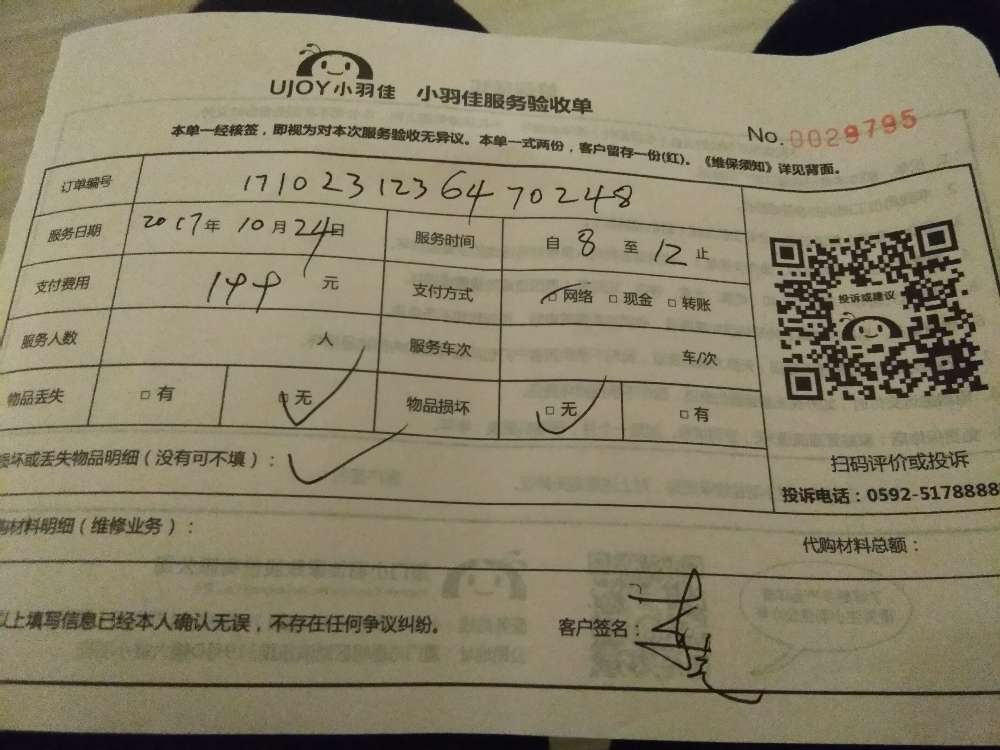 UJOY小羽佳 小羽佳服务验收单
No.0029795
本单一经核签，即视为对本次服务验收无异议。本单一式两份，客户留存一份(红)。《维保须知》详见背面。
订单编号 17102312364 70248
服务日期 2017年 10月 24日 服务时间 自 8 至 12 止
支付费用 199 元 支付方式 □网络 □现金 □转账
服务人数 人 服务车次 车/次
物品丢失 □有 □无 物品损坏 □无 □有
投诉或建议
损坏或丢失物品明细（没有可不填）：
扫码评价或投诉
投诉电话：0592-5178888
购材料明细（维修业务）：
代购材料总额：
以上填写信息已经本人确认无误，不存在任何争议纠纷。
客户签名：